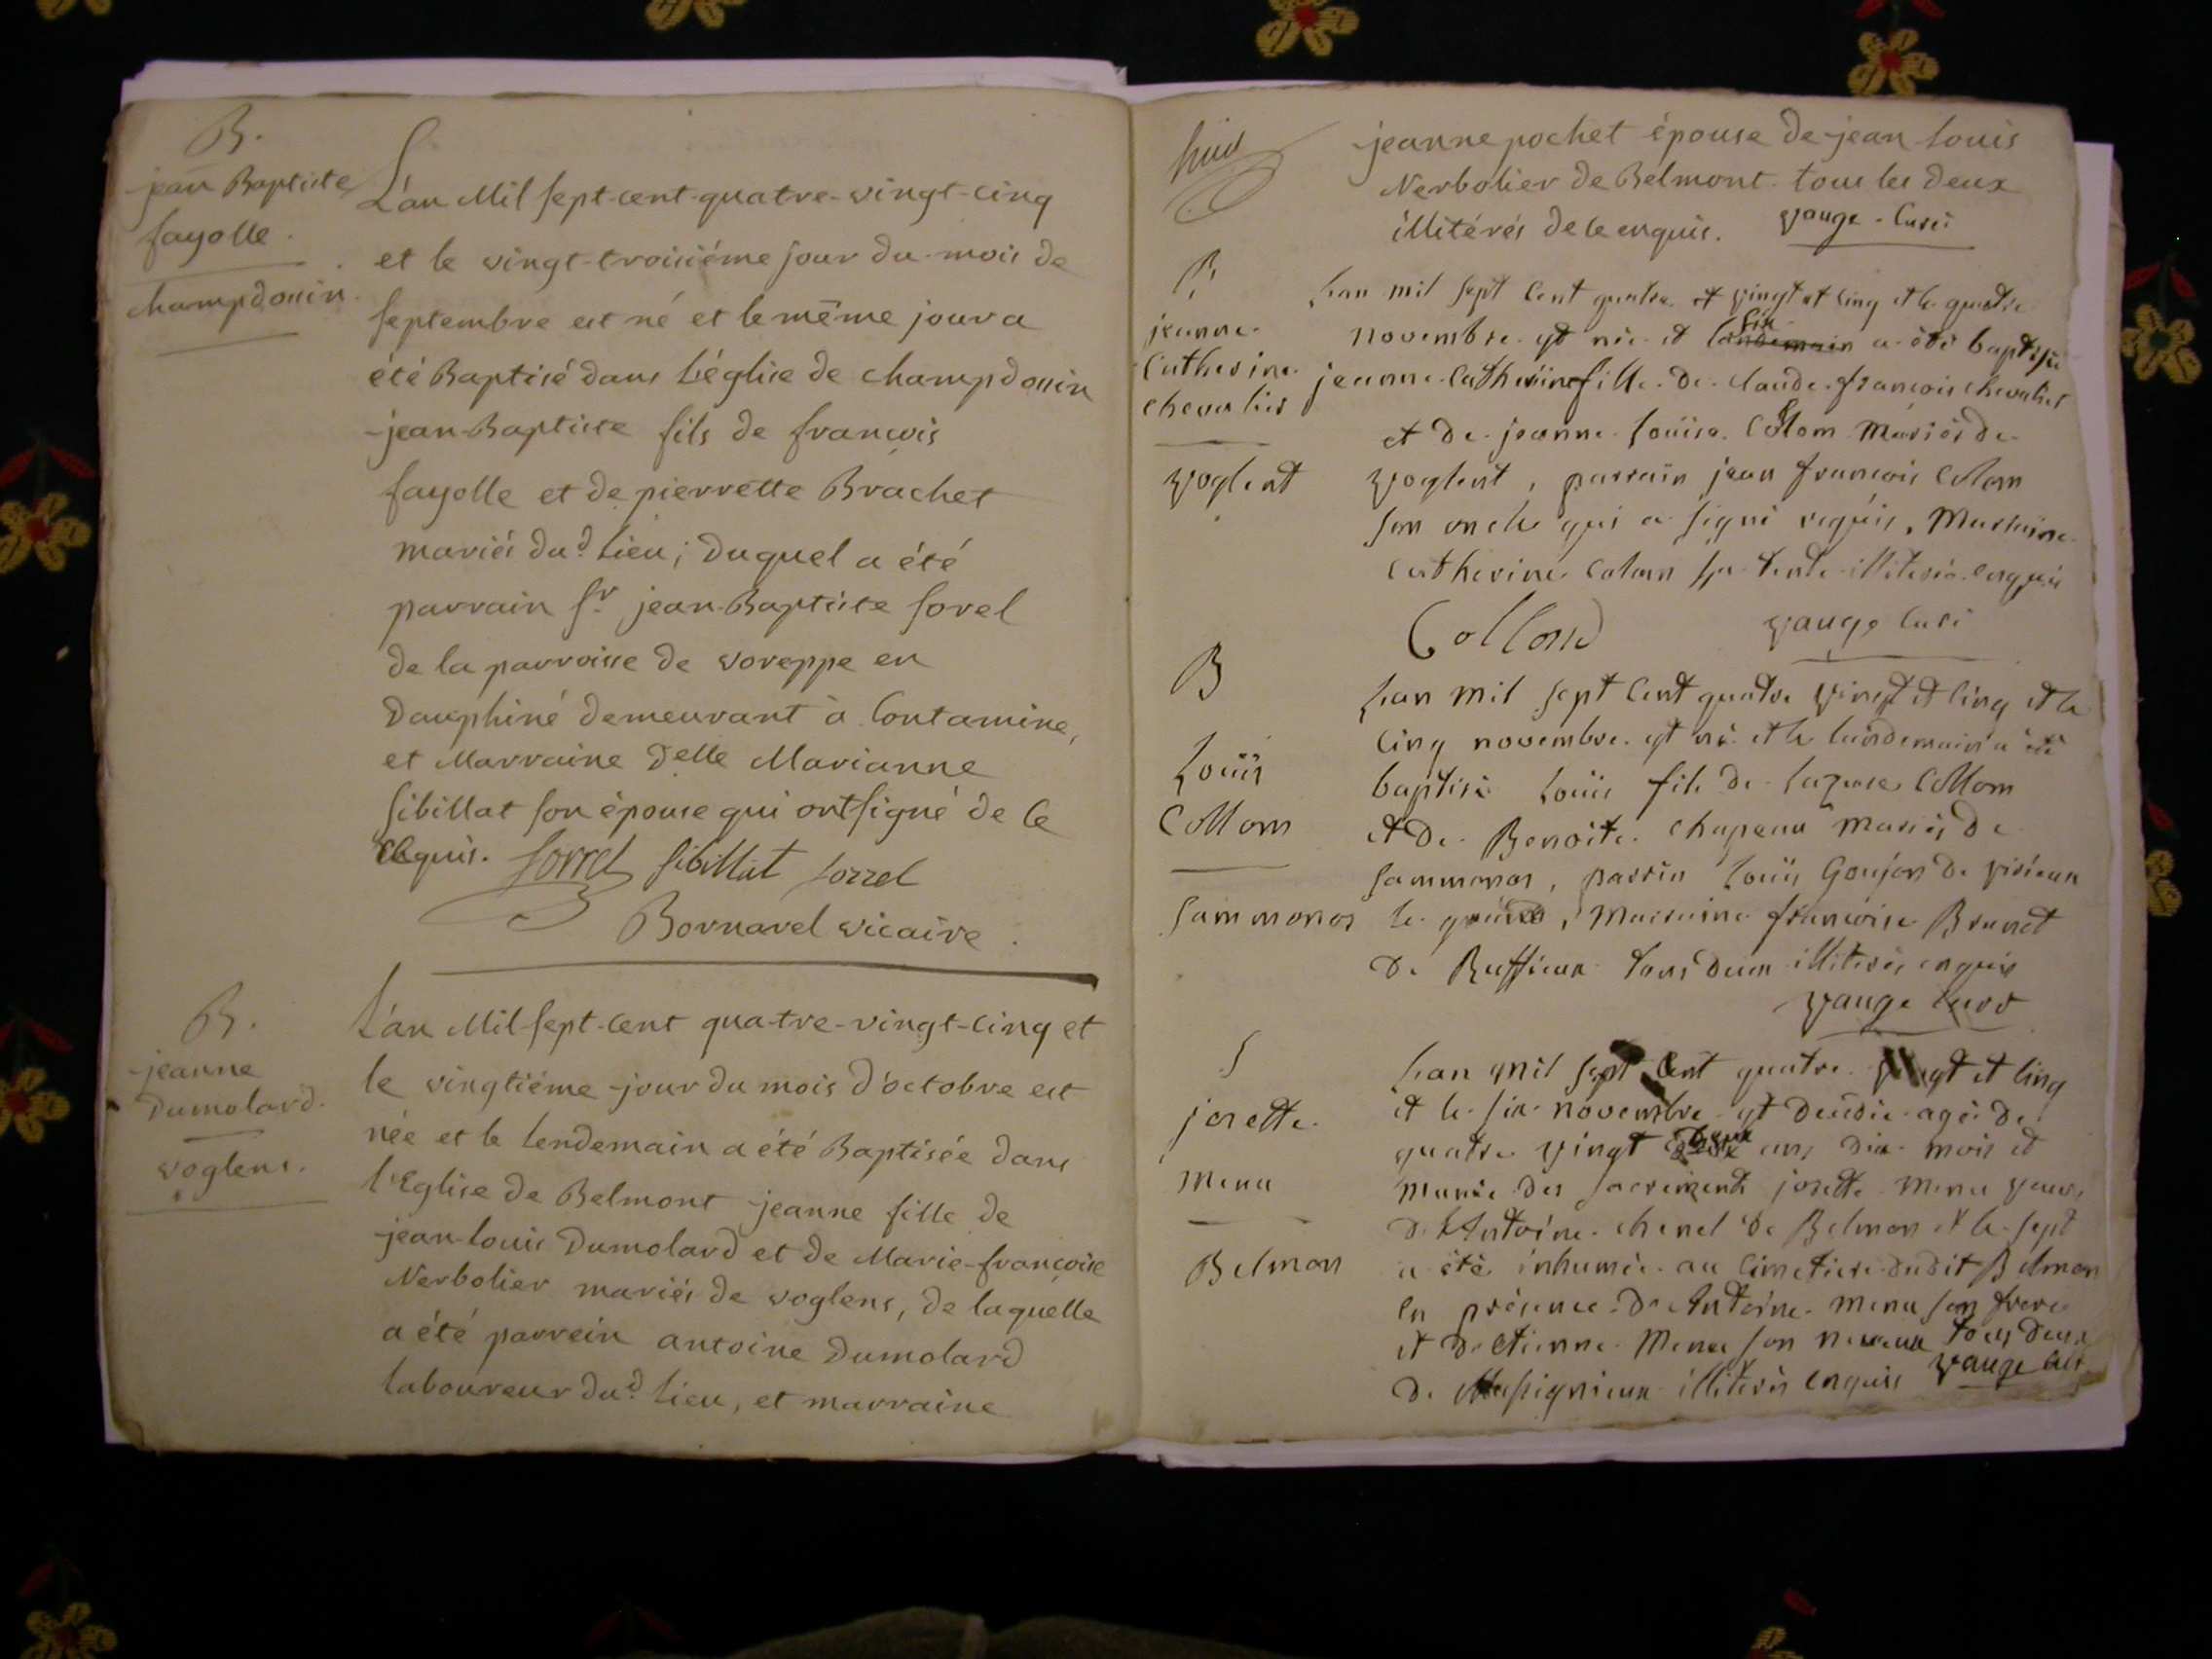 B.
jean Baptiste
fayolle.
champdossin.
L'an Mil sept-cent-quatre-vingt-cinq
et le vingt-troisiéme jour du mois de
septembre est né et le même jour a
été Baptisé dans L'église de champdossin
jean-Baptiste fils de francois
fayolle et de pierrette Brachet
mariés dud. lieu; duquel a été
parrain Sr. jean-Baptiste sorel
de la parroisse de voreppe en
Dauphiné demeurant à Contamine,
et Marraine Delle Marianne
sibillat son épouse qui ont signé de ce
requis. Sorrel sibillat sorrel
Bornarel vicaire.
B.
jeanne
Dumolard.
voglens.
L'an Mil-sept-cent quatre-vingt-cinq et
le vingtiéme jour du mois d'octobre est
née et le lendemain a été Baptisée dans
l'Eglise de Belmont jeanne fille de
jean-louis Dumolard et de Marie-francoise
Nerbolier mariés de voglens, de laquelle
a été parrein antoine Dumolard
laboureur dud. lieu, et marraine
huit
jeanne pochet épouse de jean louis
Nerbolier de Belmont. tous les deux
illitérés de ce enquis. vauge curé
B
jeanne
Catherine
chevalier
voglent
Lan mil sept cent quatre et vingt et cinq et le quatre
novembre est née et landemain six a été baptisée
jeanne Catherine fille de claude francois chevalier
et de jeanne Louise Collom mariés de
voglent, parrain jean francois Colom
son oncle qui a signé requis, Marraine
Catherine Colom sa tente illiterée enquis
Collond vauge curé
B
Louis
Collom
Sammonos
Lan mil sept cent quatre vingt et cinq et le
cinq novembre est né et le landemain a été
baptisé Louis fils de Collom
et de Benoite chapeau mariés de
Sammonos, parrin Louis Goujon de virieux
le grand, Marraine francoise Brunet
de Ruffieux tous deux illiterés enquis
vauge curé
S
josette
menu
Belmon
Lan mil sept cent quatre vingt et cinq
et le six novembre est decedée agée de
quatre vingt deux ans dix mois et
munie des sacrements josette menu veuve
d'Antoine chenel de Belmon et le sept
a été inhumée au cimetiere dudit Belmon
en présence d'Antoine menu son frere
et d'etienne Menu son neveux tous deux
de Massignieux illiterés enquis vauge curé